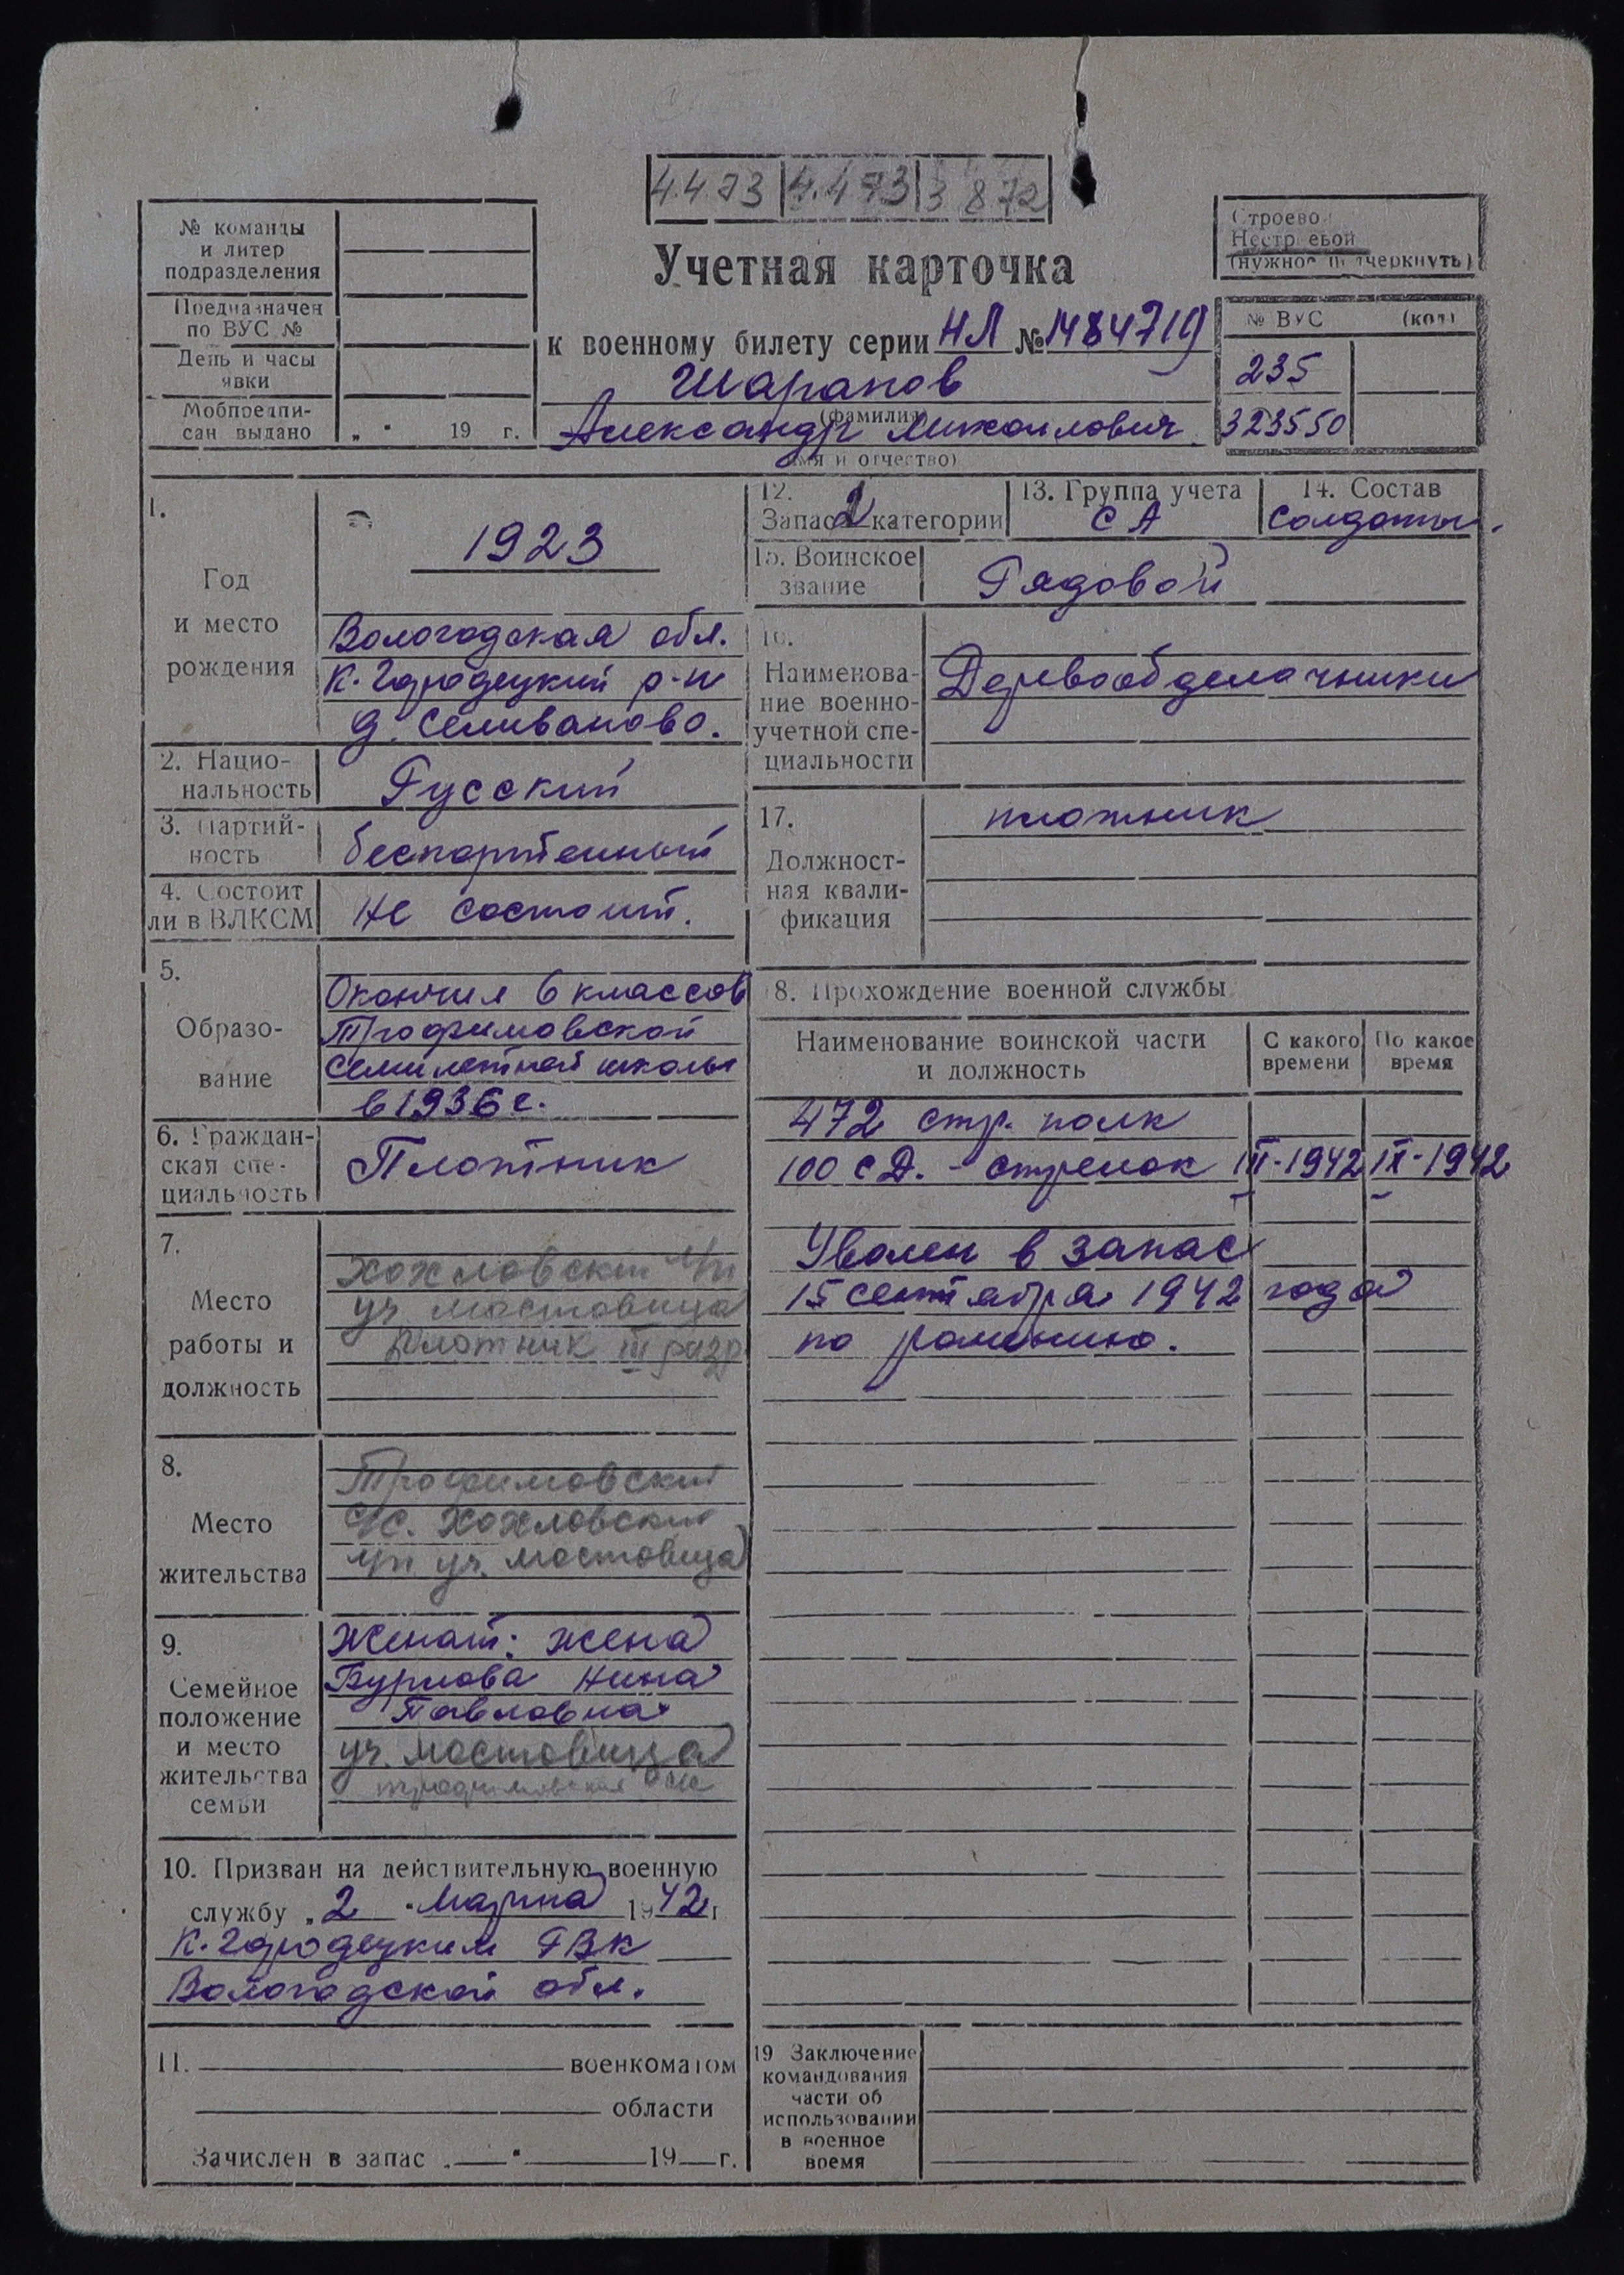 4.4.73 4.4 73 3 8 72
№ команды
и литер
подразделения
Предназначен
по ВУС №
День и часы
явки
Мобпредпи-
сан выдано „ " 19 г.
Учетная карточка
к военному билету серии НЛ № 1484719
Шарапов
(фамилия)
Александр Михайлович.
(имя и отчество)
Строевой
Нестроевой
(нужное подчеркнуть)
№ ВУС (код)
235
323550
1.
Год
и место
рождения
1923
Вологодская обл.
К-Городецкий р-н
д. Селиваново.
2. Нацио-
нальность
Русский
3. Партий-
ность
беспартейный
4. Состоит
ли в ВЛКСМ
Не состоит.
5.
Образо-
вание
Окончил 6 классов
Трофимовской
семилетной школы
в 1936 г.
6. Граждан-
ская спе-
циальность
Плотник
7.
Место
работы и
должность
Хохловский л/п
уч мостовица
Плотник III разр
8.
Место
жительства
Трофимовский
с/с. Хохловский
л/п уч. Мостовица
9.
Семейное
положение
и место
жительства
семьи
Женат: жена
Бурлова Нина
Павловна
уч. Мостовица
10. Призван на действительную военную
службу „ 2 " Марта 1942 г.
К-Городецким РВК
Вологодской обл.
11. военкоматом
области
Зачислен в запас „ " 19 г.
12.
Запас 2 категории
13. Группа учета
СА
14. Состав
Солдаты.
15. Воинское
звание
Рядовой
16.
Наименова-
ние военно-
учетной спе-
циальности
Деревообделочники
17.
Должност-
ная квали-
фикация
плотник
18. Прохождение военной службы
Наименование воинской части
и должность
С какого
времени
По какое
время
472 стр. полк
100 СД. - стрелок III-1942 IX-1942
Уволен в запас
15 сентября 1942 года
по ранению.
19 Заключение
командования
части об
использовании
в военное
время